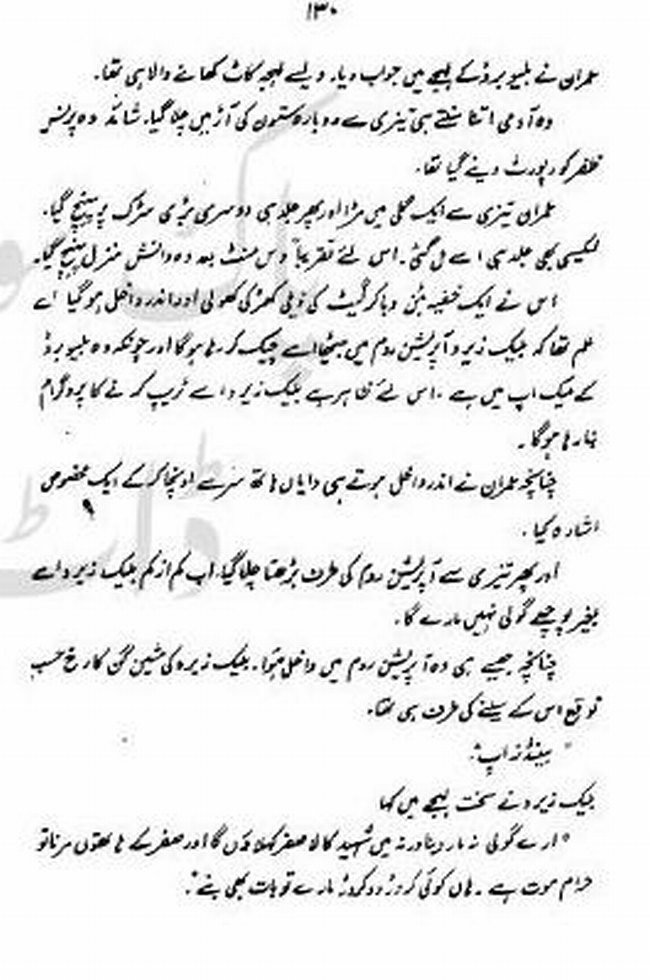 ۱۳۰
عمران نے بلیو برڈ کے لہجے میں جواب دیا۔ ویسے لہجہ کاٹ کھانے والا ہی تھا۔
وہ آدمی اتنا سنتے ہی تیزی سے دوبارہ ستون کی آڑ میں چلا گیا۔ شائد وہ پرنس
ظفر کو رپورٹ دینے گیا تھا۔
عمران تیزی سے ایک گلی میں مڑا اور پھر جلد ہی دوسری بڑی سڑک پر پہنچ گیا۔
ٹیکسی بھی جلد ہی اسے مل گئی۔ اس لئے تقریباً دس منٹ بعد وہ دانش منزل پہنچ گیا۔
اس نے ایک خفیہ بٹن دبا کر گیٹ کی ذیلی کھڑکی کھولی اور اندر داخل ہو گیا اسے
علم تھا کہ بلیک زیرو آپریشن روم میں بیٹھا اسے چیک کر رہا ہوگا اور چونکہ وہ بلیو برڈ
کے میک اپ میں ہے۔ اس لئے ظاہر ہے بلیک زیرو اسے ٹریپ کرنے کا پروگرام
بنا رہا ہوگا۔
چنانچہ عمران نے اندر داخل ہوتے ہی دایاں ہاتھ سر سے اونچا کر کے ایک مخصوص
اشارہ کیا۔
اور پھر تیزی سے آپریشن روم کی طرف بڑھتا چلا گیا۔ اب کم از کم بلیک زیرو اسے
بغیر پوچھے گولی نہیں مارے گا۔
چنانچہ جیسے ہی وہ آپریشن روم میں داخل ہؤا۔ بلیک زیرو کی مشین گن کا رخ حسب
توقع اس کے سینے کی طرف ہی تھا۔
" ہینڈز اپ "۔
بلیک زیرو نے سخت لہجے میں کہا
" ارے گولی نہ مار دینا ورنہ میں شہید کالا صفر کہلاؤں گا اور صفر کے ہاتھوں مرنا تو
حرام موت ہے۔ ہاں کوئی کروڑ دو کروڑ مارے تو بات بھی بنے "۔